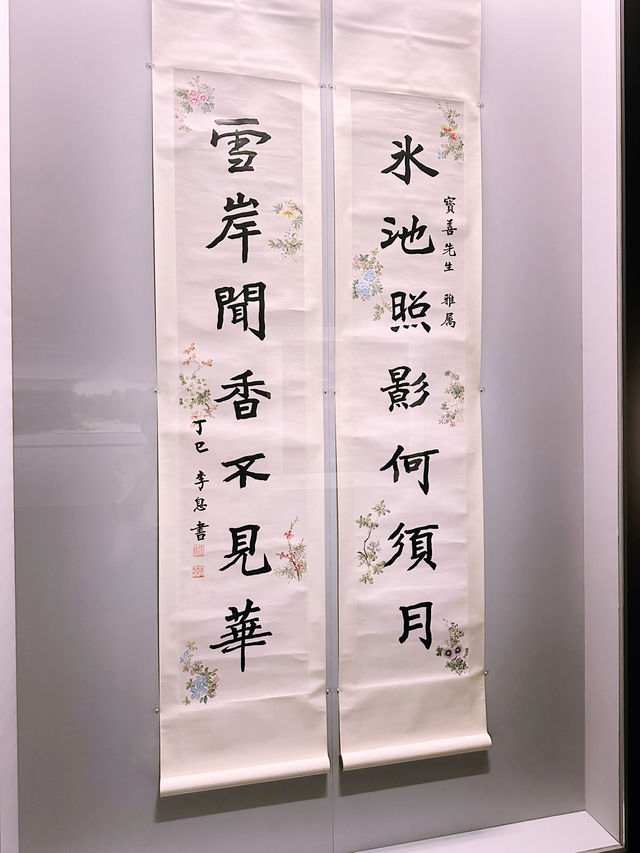 氷池照影何須月
寶善先生 雅屬
雪岸聞香不見華
丁巳 李息書